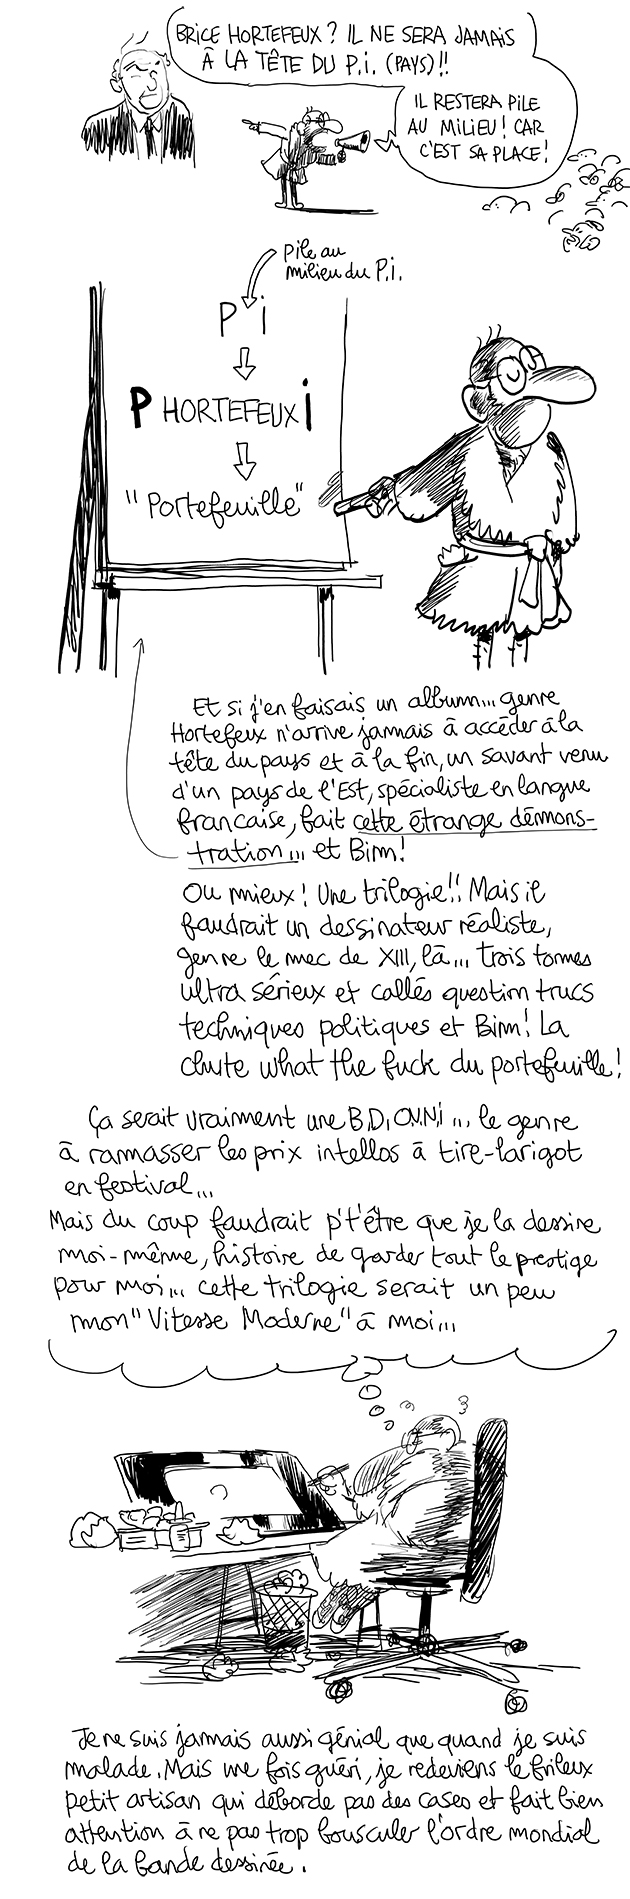 BRICE HORTEFEUX ? IL NE SERA JAMAIS
À LA TÊTE DU P.i. (PAYS) !!
IL RESTERA PILE
AU MILIEU ! CAR
C'EST SA PLACE !
Pile au
milieu du P.i.
P i
P HORTEFEUX i
"Portefeuille"
Et si j'en faisais un album... genre
Hortefeux n'arrive jamais à accéder à la
tête du pays et à la fin, un savant venu
d'un pays de l'Est, spécialiste en langue
francaise, fait cette étrange démons-
tration... et Bim !
Ou mieux ! Une trilogie !! Mais il
faudrait un dessinateur réaliste,
genre le mec de XIII, là... trois tomes
ultra sérieux et callés question trucs
techniques politiques et Bim ! La
chute what the fuck du portefeuille !
Ça serait vraiment une B.D. O.V.N.i... le genre
à ramasser les prix intellos à tire-larigot
en festival...
Mais du coup faudrait p't'être que je la dessine
moi-même, histoire de garder tout le prestige
pour moi... cette trilogie serait un peu
mon "Vitesse Moderne" à moi...
Je ne suis jamais aussi génial que quand je suis
malade. Mais une fois guéri, je redeviens le frileux
petit artisan qui déborde pas des cases et fait bien
attention à ne pas trop bousculer l'ordre mondial
de la bande dessinée.